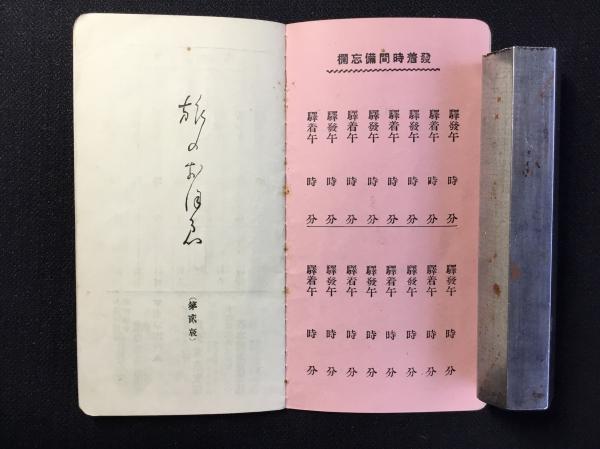 發着時間備忘欄
驛發午 時 分
驛着午 時 分
驛發午 時 分
驛着午 時 分
驛發午 時 分
驛着午 時 分
驛發午 時 分
驛着午 時 分
驛發午 時 分
驛着午 時 分
驛發午 時 分
驛着午 時 分
驛發午 時 分
驛着午 時 分
驛發午 時 分
驛着午 時 分
旅のおほえ